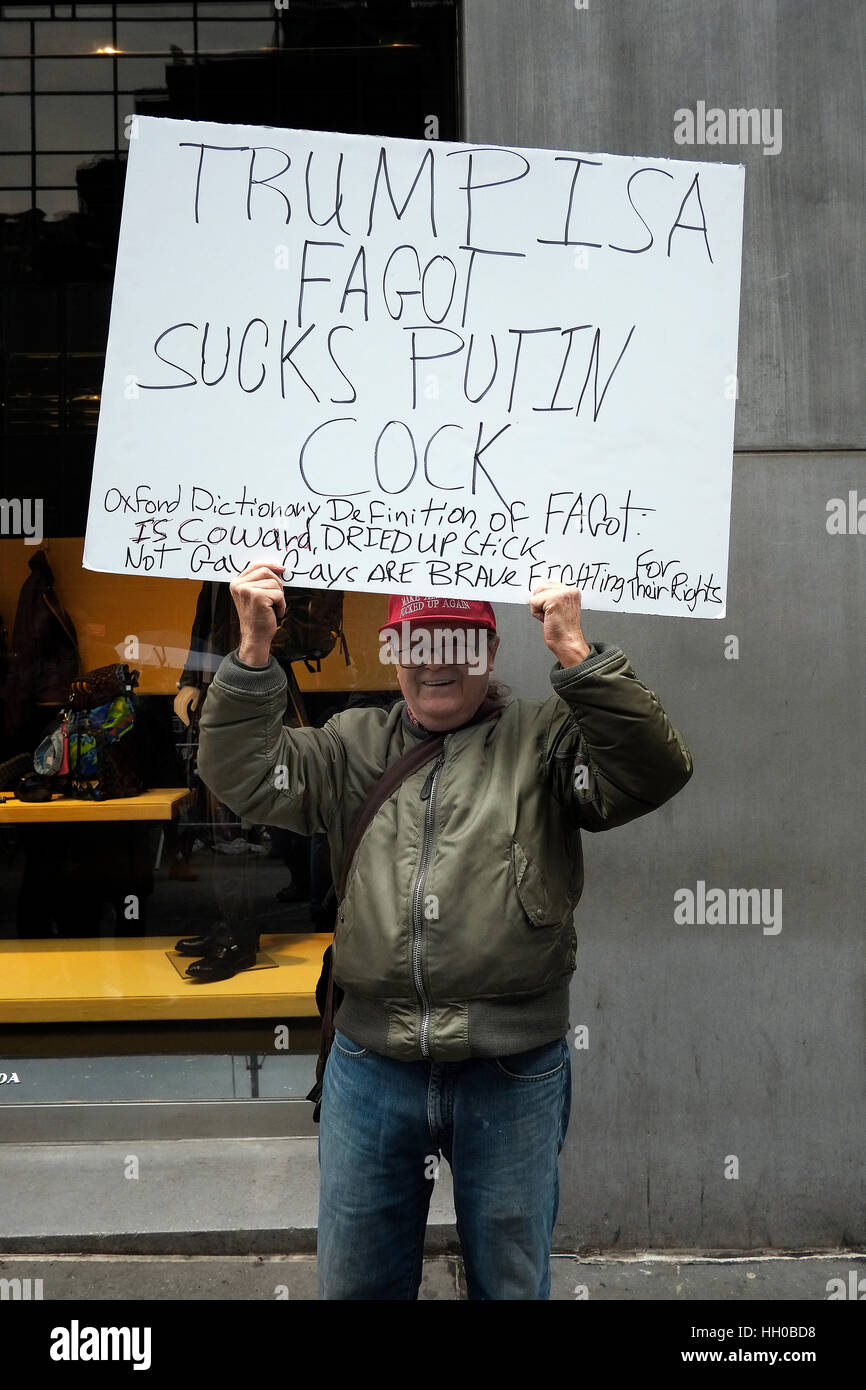 TRUMP IS A
FAGOT
SUCKS PUTIN
COCK
Oxford Dictionary Definition of FAGot.
IS Coward, DRIED UP Stick
Not Gay, Gays ARE BRAVE FIGHTING For Their Rights
FUCKED UP AGAIN
DA
alamy
alamy
Image ID: HH0BD8
www.alamy.com